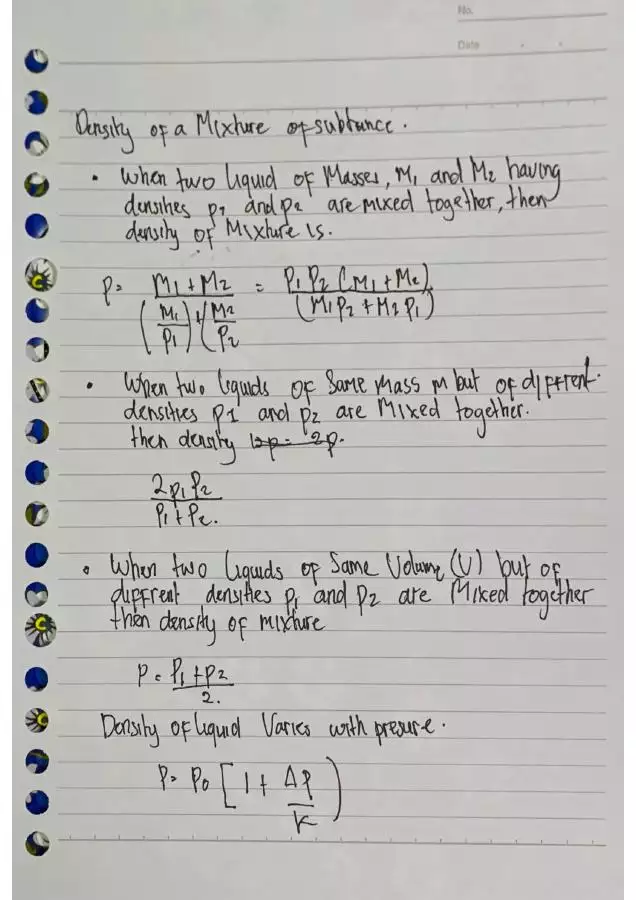 No.
Date
Density of a Mixture of subtance.
• When two liquid of Masses, M1 and M2 having
densities p1 and p2 are mixed together, then
density of Mixture is.
p= M1 + M2 / (M1/p1)+(M2/p2 = P1 P2 (M1 + M2) / (M1 P2 + M2 P1)
• When two liquids of Same mass m but of diffrent.
densities p1 and p2 are Mixed together.
then density
2p1 P2 / P1 + P2.
• When two liquids of Same Volume (V) but of
diffrent densities p1 and p2 are Mixed together
then density of mixture
p= P1 + p2 / 2.
Density of liquid Varies with presure.
p= p0 [1 + Δp / K)